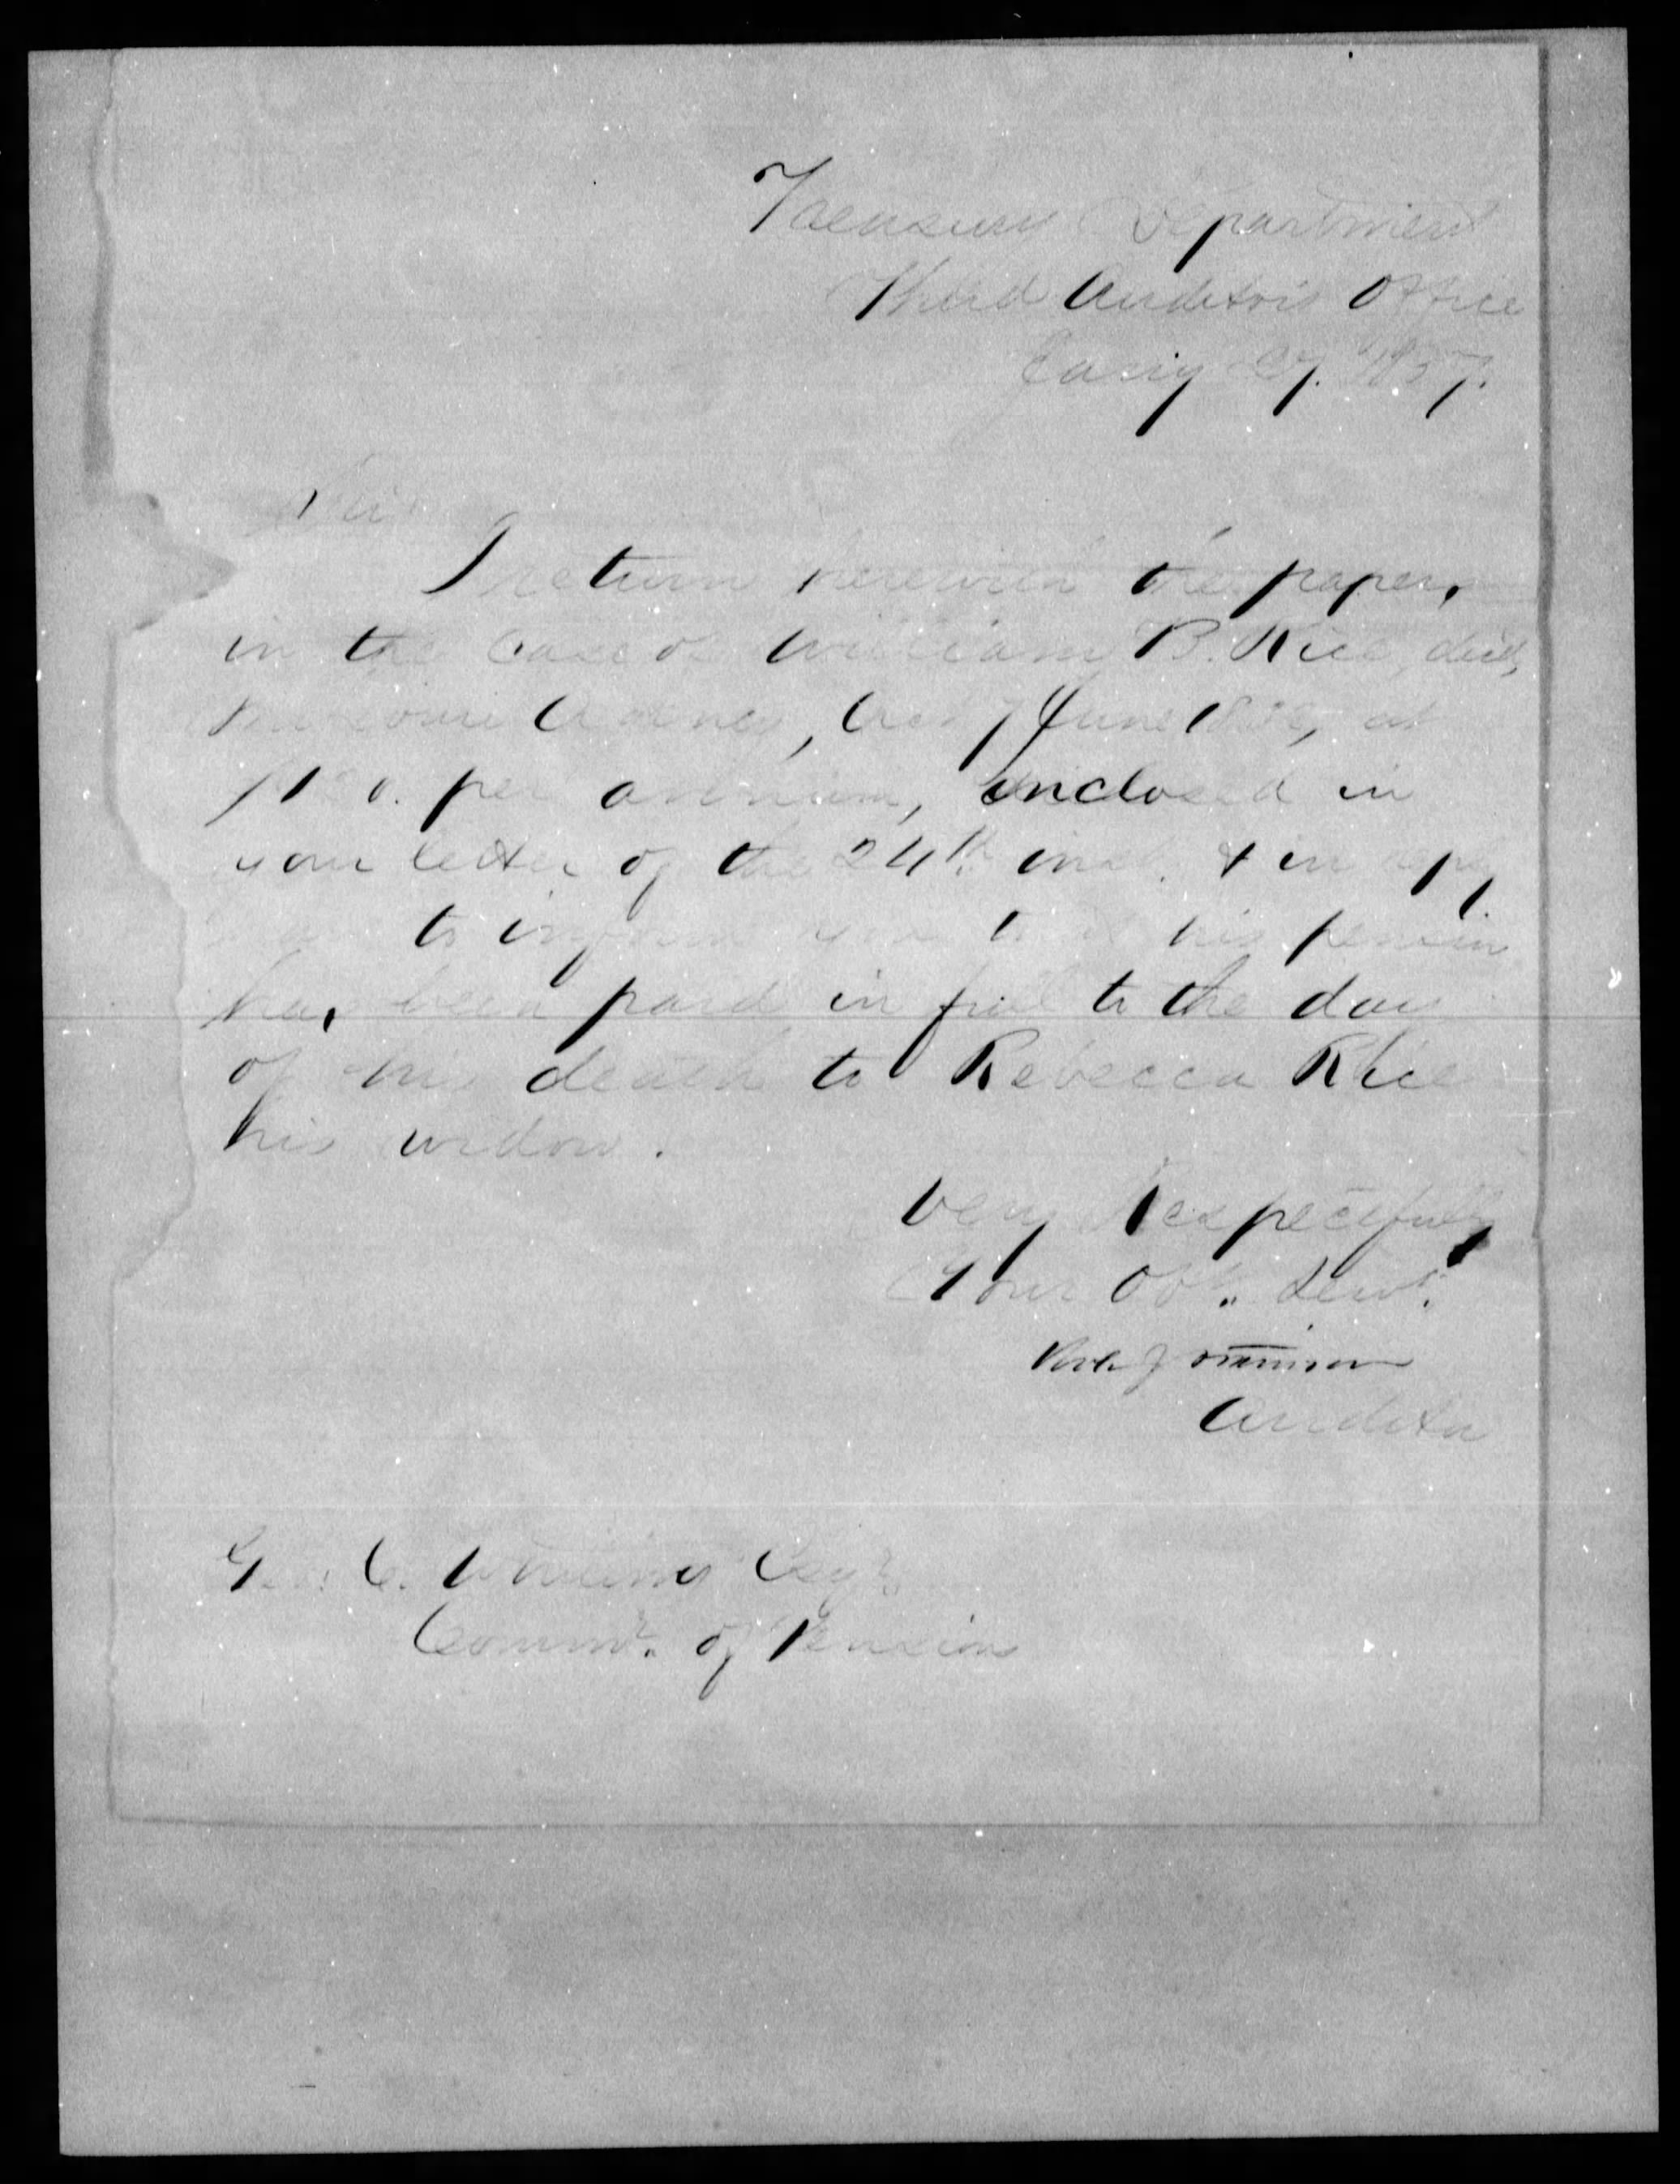 Treasury Department
Third Auditor's Office
27. 1857.
Sir
I return herewith the papers
in the case of William B. Rice, decd,
Agency, Act 7 June 1832, at
per annum, enclosed in
your letter of the 24th inst. & in reply
to inform you that his pension
has been paid in full to the day
of his death to Rebecca Rice
his widow.
Very Respectfully
Your Obt. Servt.
Auditor
Geo. C. Whiting Esqr
Commr. of Pensions